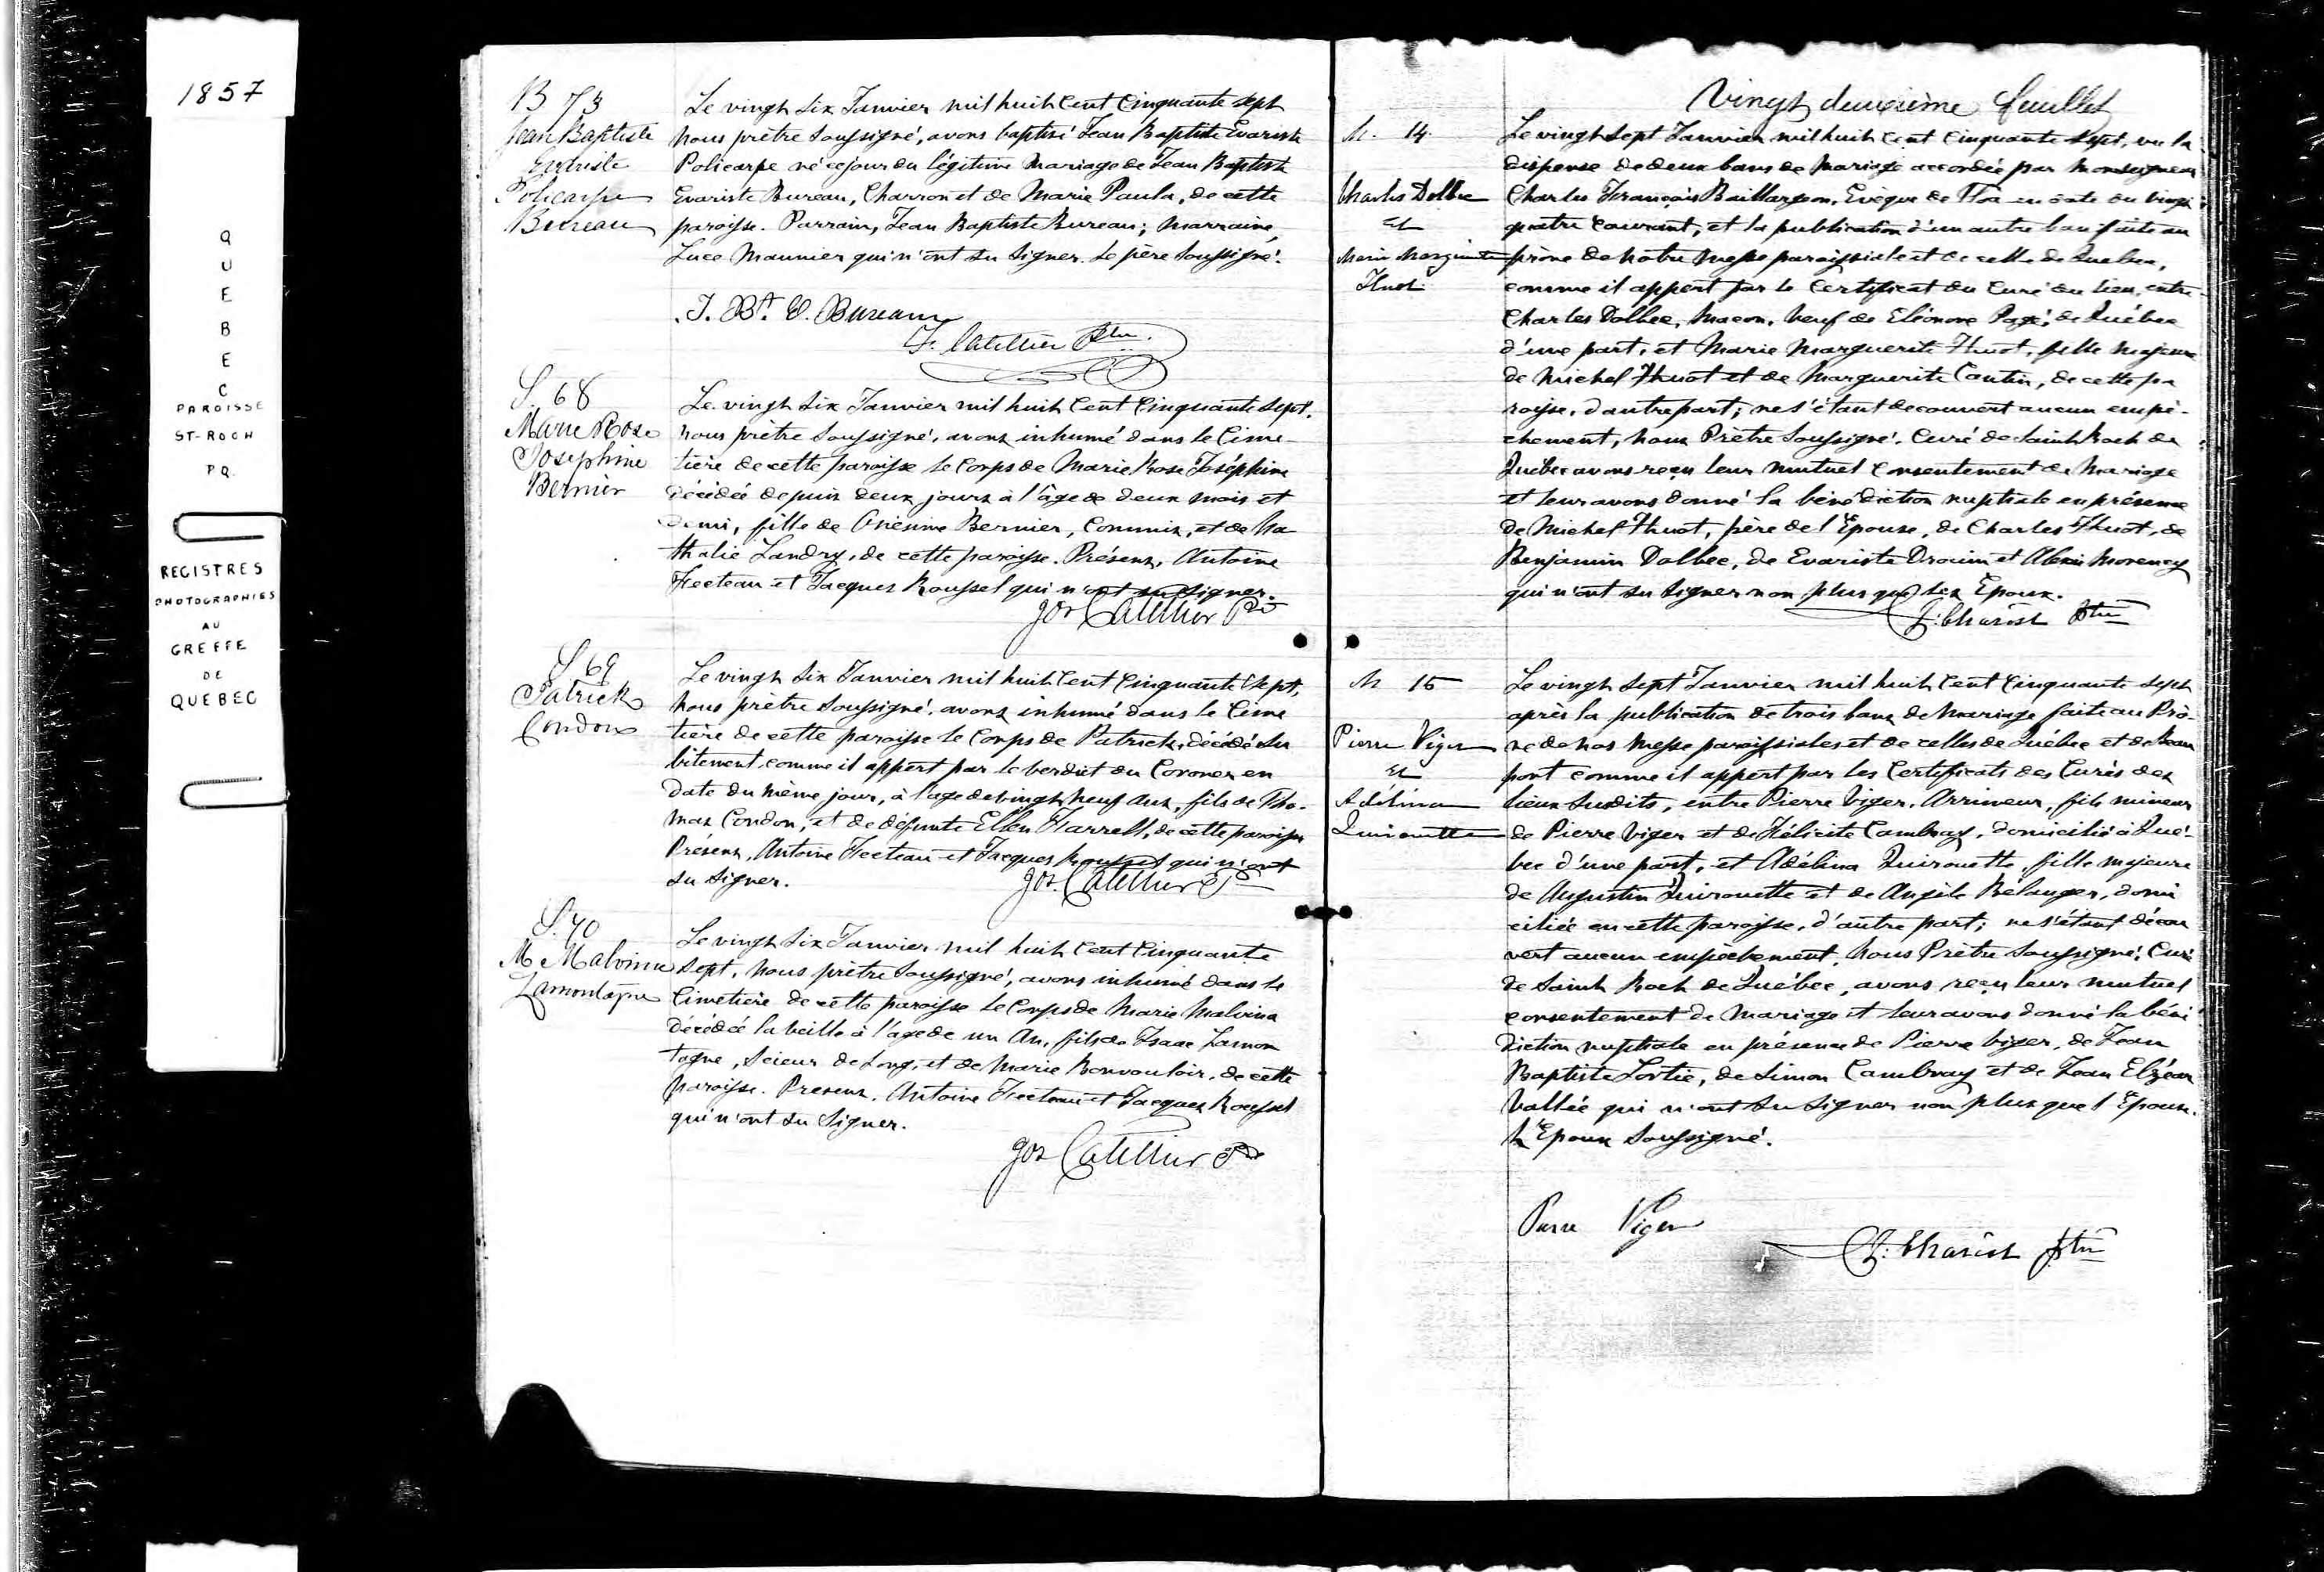 1857
QUEBEC
PAROISSE
ST-ROCH
P.Q.
REGISTRES
PHOTOGRAPHIES
AU
GREFFE
DE
QUEBEC
B 73
Jean Baptiste
Evariste
Policarpe
Bureau
Le vingt six Janvier mil huit Cent Cinquante sept
nous prêtre soussigné, avons baptisé Jean Baptiste Evariste
Policarpe né ce jour du légitime mariage de Jean Baptiste
Evariste Bureau, Charron et de Marie Paula, de cette
paroisse. Parrain, Jean Baptiste Bureau; marraine,
Luce Maunier qui n'ont su signer. Le père soussigné.
J. Bt. E. Bureau
J. Catellier Ptre.
S. 68
Marie Rose
Josephine
Bernier
Le vingt six Janvier mil huit Cent Cinquante sept.
nous prêtre soussigné, avons inhumé dans le Cime-
tière de cette paroisse le Corps de Marie Rose Joséphine
décédée depuis deux jours à l'âge de deux mois et
demi, fille de Onésime Bernier, Commis, et de Na
thalie Landry, de cette paroisse. Présens, Antoine
Fecteau et Jacques Roussel qui n'ont su signer.
Jos Catellier Ptre
S 69
Patrick
Condon
Le vingt six Janvier mil huit Cent Cinquante sept,
nous prêtre soussigné, avons inhumé dans le Cime
tière de cette paroisse le Corps de Patrick, décédé su
bitement, comme il appert par le verdict du Coroner en
date du même jour, à l'age de vingt neuf Ans, fils de Tho-
mas Condon, et de défunte Ellen Farrell, de cette paroisse
Présens, Antoine Fecteau et Jacques Roussel qui n'ont
su signer.
Jos. Catellier Ptre
S. 70
M Malvina
Lamontagne
Le vingt six Janvier mil huit Cent Cinquante
sept, nous prêtre soussigné, avons inhumé dans le
Cimetière de cette paroisse le Corps de Marie Malvina
décédée la veille à l'age de un An, fils de Isaac Lamon
tagne, Scieur de Long, et de Marie Bonvouloir, de cette
paroisse. Presens, Antoine Fecteau et Jacques Roussel
qui n'ont su signer.
Jos Catellier Ptre
Vingt deuxième feuillet
M. 14
Charles Dolbec
et
Marie Marguerite
Huot
Le vingt sept Janvier mil huit Cent Cinquante sept, vu la
dispense de deux bans de mariage accordée par Monseigneur
Charles François Baillargeon, Evêque de Tloa en date du vingt
quatre Courant, et la publication d'un autre ban faite au
prône de notre Messe paroissiale et de celle de Quebec,
comme il appert par le Certificat du Curé du lieu, entre
Charles Dolbec, Maçon, Veuf de Eléonore Pagé, de Québec
d'une part, et Marie Marguerite Huot, fille majeure
de Michel Huot et de Marguerite Cantin, de cette pa
roisse, d'autre part; ne s'étant decouvert aucun empê-
chement, nous Prêtre soussigné, Curé de Saint Roch de
Québec avons reçu leur mutuel Consentement de Mariage
et leur avons donné la bénédiction nuptiale en présence
de Michel Huot, père de l'Epouse, de Charles Huot, de
Benjamin Dolbec, de Evariste Drouin et Alexis Morency
qui n'ont su signer non plus que les Epoux.
Z: Charest Ptre
M 15
Pierre Viger
et
Adélina
Quirouette
Le vingt sept Janvier mil huit Cent Cinquante sept
après la publication de trois bans de Mariage faite au Prô-
ne de nos Messe paroissiales et de celles de Québec et de Beau
port comme il appert par les Certificats des Curés des
lieux susdits, entre Pierre Viger, Arrimeur, fils mineur
de Pierre Viger et de Félicité Cambray, domicilié à Qué-
bec d'une part, et Adélina Quirouette, fille majeure
de Augustin Quirouette et de Angèle Bélanger, domi
ciliée en cette paroisse, d'autre part; ne s'étant décou
vert aucun empêchement, nous Prêtre soussigné, Curé
de Saint Roch de Québec, avons reçu leur mutuel
consentement de Mariage et leur avons donné la béné
diction nuptiale en présence de Pierre Viger, de Jean
Baptiste Lortie, de Simon Cambray et de Jean Elzéar
Vallée qui n'ont su signer non plus que l'Epouse.
L'Epoux soussigné.
Pierre Viger
Z: Charest Ptre